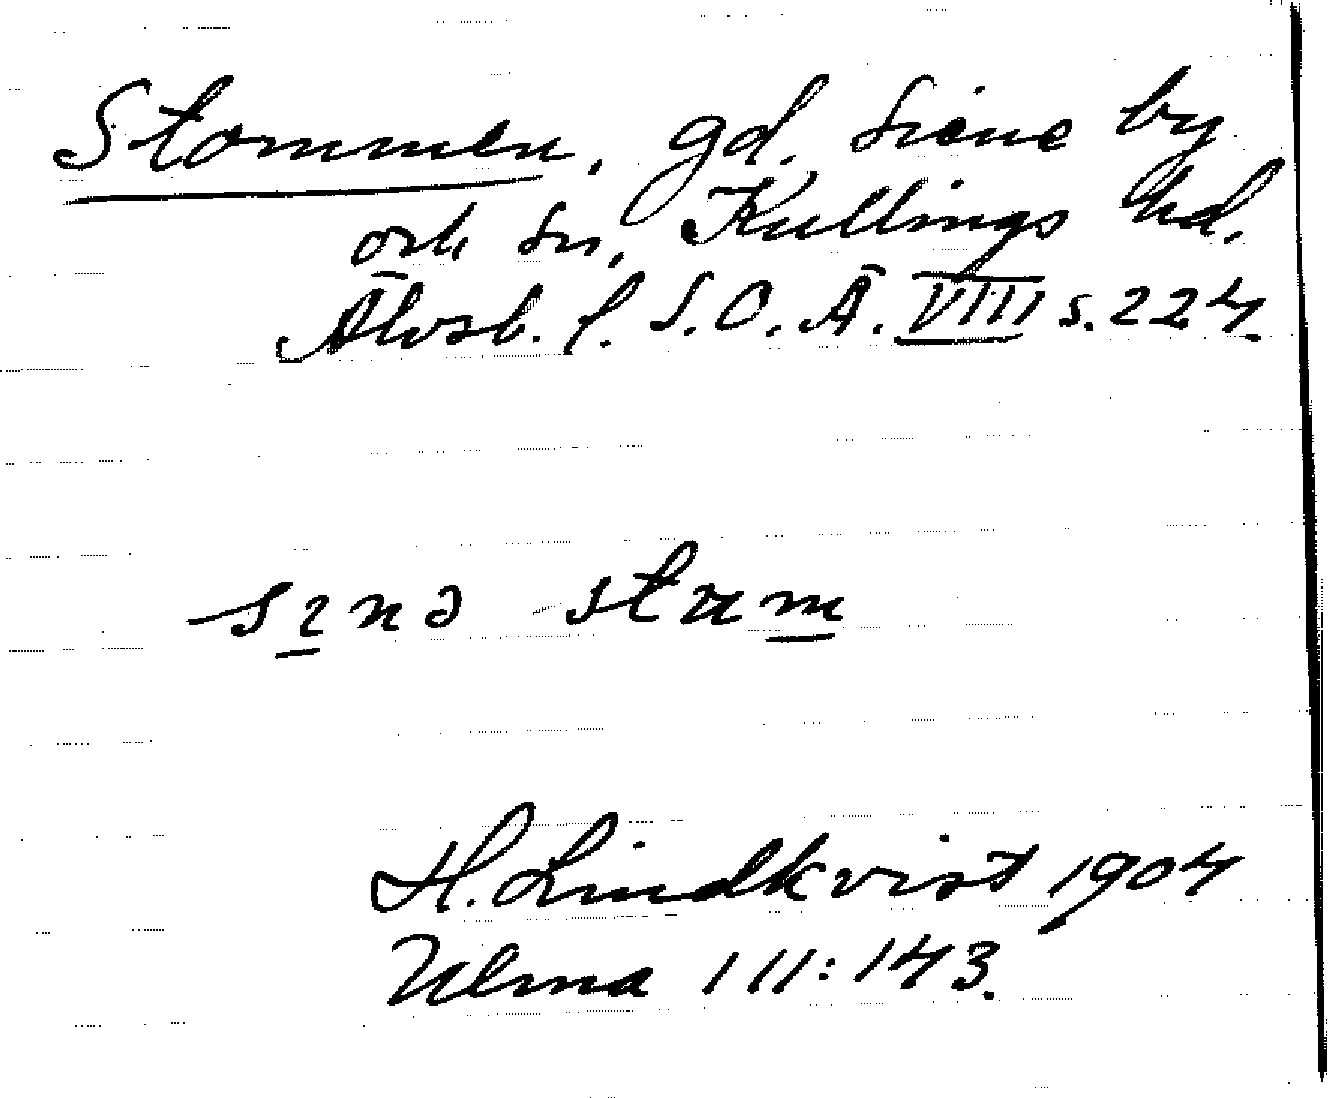 Stommen, gd. Siene by
och sn, Kullings hd.
Älvsb. l. S.O.Ä. VIII s. 224.
stum
H. Lindkvist 1904
Ulma 111:143.